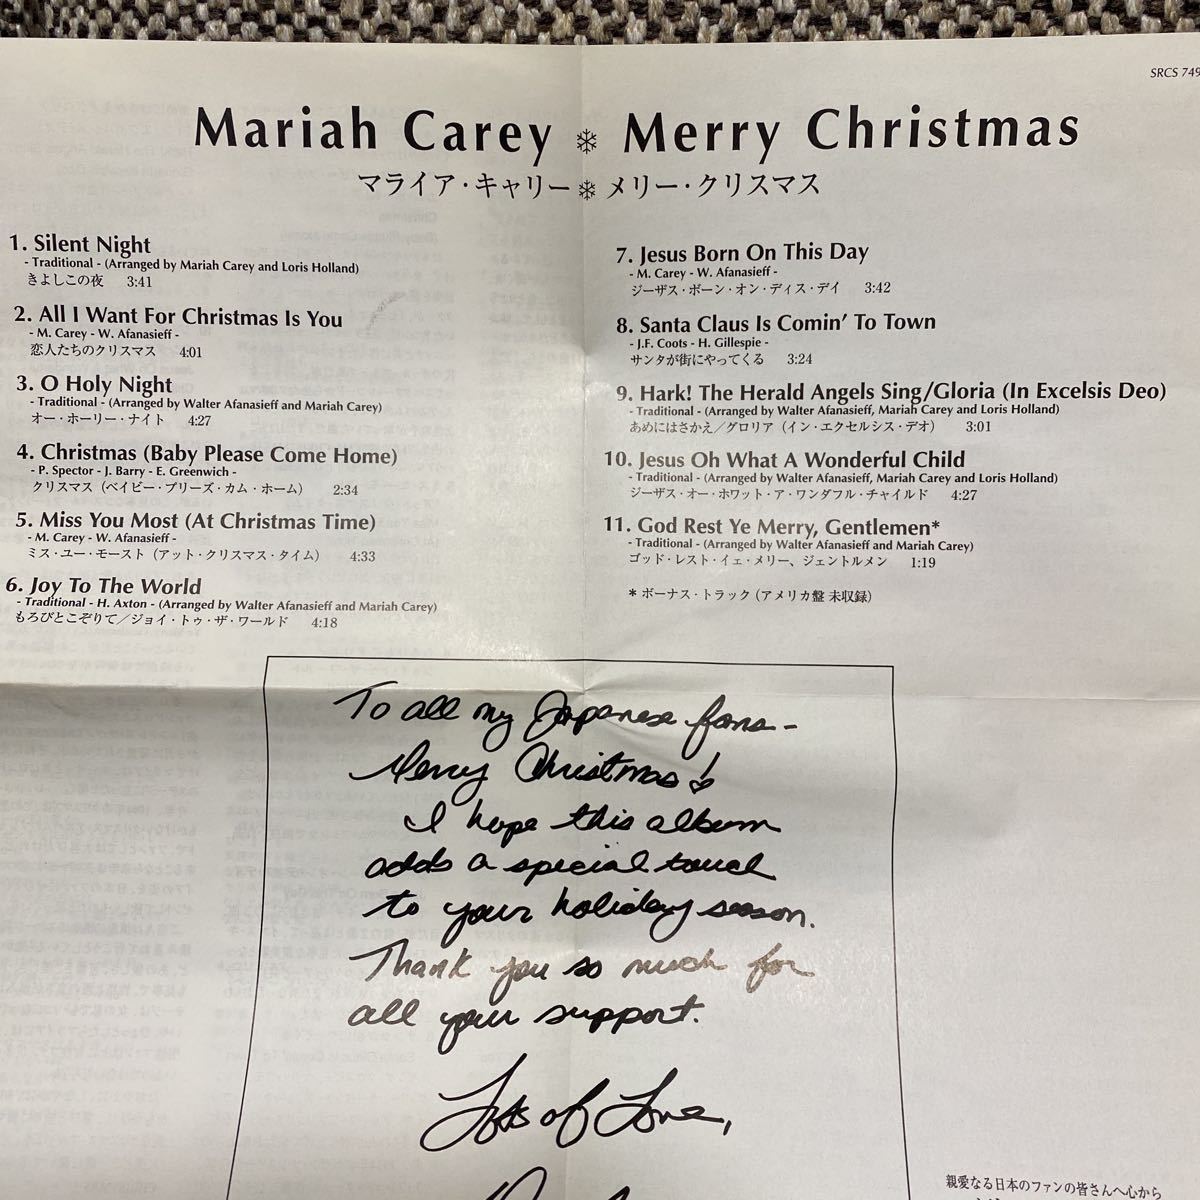 SRCS 749
Mariah Carey ❄ Merry Christmas
マライア・キャリー❄メリー・クリスマス
1. Silent Night
- Traditional - (Arranged by Mariah Carey and Loris Holland)
きよしこの夜 3:41
2. All I Want For Christmas Is You
- M. Carey - W. Afanasieff -
恋人たちのクリスマス 4:01
3. O Holy Night
- Traditional - (Arranged by Walter Afanasieff and Mariah Carey)
オー・ホーリー・ナイト 4:27
4. Christmas (Baby Please Come Home)
- P. Spector - J. Barry - E. Greenwich -
クリスマス（ベイビー・プリーズ・カム・ホーム） 2:34
5. Miss You Most (At Christmas Time)
- M. Carey - W. Afanasieff -
ミス・ユー・モースト（アット・クリスマス・タイム） 4:33
6. Joy To The World
- Traditional - H. Axton - (Arranged by Walter Afanasieff and Mariah Carey)
もろびとこぞりて／ジョイ・トゥ・ザ・ワールド 4:18
7. Jesus Born On This Day
- M. Carey - W. Afanasieff -
ジーザス・ボーン・オン・ディス・デイ 3:42
8. Santa Claus Is Comin' To Town
- J.F. Coots - H. Gillespie -
サンタが街にやってくる 3:24
9. Hark! The Herald Angels Sing/Gloria (In Excelsis Deo)
- Traditional - (Arranged by Walter Afanasieff, Mariah Carey and Loris Holland)
あめにはさかえ／グロリア（イン・エクセルシス・デオ） 3:01
10. Jesus Oh What A Wonderful Child
- Traditional - (Arranged by Walter Afanasieff, Mariah Carey and Loris Holland)
ジーザス・オー・ホワット・ア・ワンダフル・チャイルド 4:27
11. God Rest Ye Merry, Gentlemen*
- Traditional - (Arranged by Walter Afanasieff and Mariah Carey)
ゴッド・レスト・イェ・メリー、ジェントルメン 1:19
* ボーナス・トラック（アメリカ盤 未収録）
To all my Japanese fans -
Merry Christmas!
I hope this album
adds a special touch
to your holiday season.
Thank you so much for
all your support.
Lots of Love,
親愛なる日本のファンの皆さんへ心から